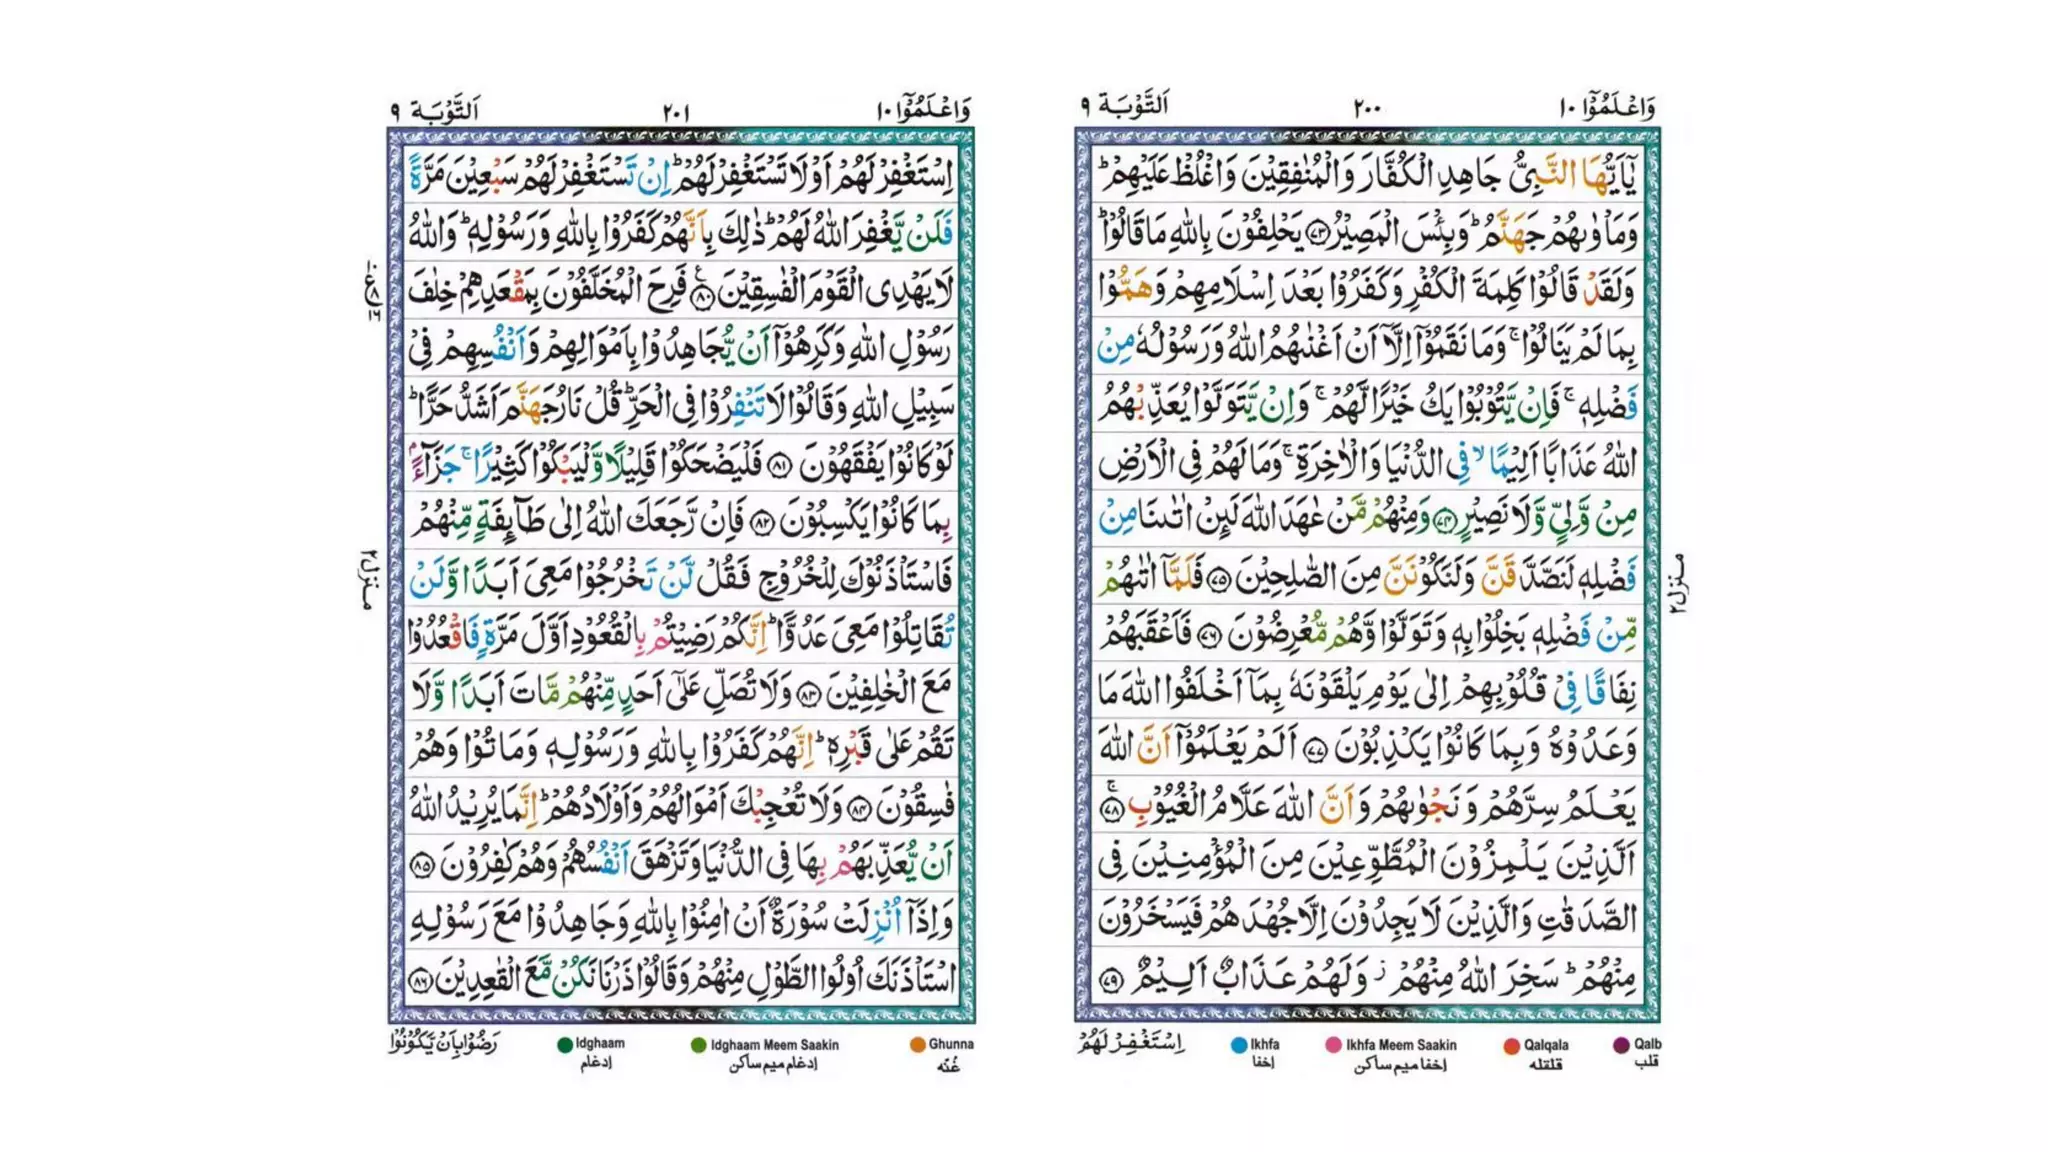 وَاعْلَمُوْٓا ١٠
٢٠٠
اَلتَّوْبَة ٩
يٰٓاَيُّهَا النَّبِىُّ جَاهِدِ الْكُفَّارَ وَالْمُنٰفِقِيْنَ وَاغْلُظْ عَلَيْهِمْ ؕ
وَمَاْوٰىهُمْ جَهَنَّمُ ؕ وَبِئْسَ الْمَصِيْرُ ﴿٧٣﴾ يَحْلِفُوْنَ بِاللّٰهِ مَا قَالُوْا ؕ
وَلَقَدْ قَالُوْا كَلِمَةَ الْكُفْرِ وَكَفَرُوْا بَعْدَ اِسْلَامِهِمْ وَهَمُّوْا
بِمَا لَمْ يَنَالُوْا ۚ وَمَا نَقَمُوْٓا اِلَّآ اَنْ اَغْنٰىهُمُ اللّٰهُ وَرَسُوْلُهٗ مِنْ
فَضْلِهٖ ۚ فَاِنْ يَّتُوْبُوْا يَكُ خَيْرًا لَّهُمْ ۚ وَاِنْ يَّتَوَلَّوْا يُعَذِّبْهُمُ
اللّٰهُ عَذَابًا اَلِيْمًا ۙ فِى الدُّنْيَا وَالْاٰخِرَةِ ۚ وَمَا لَهُمْ فِى الْاَرْضِ
مِنْ وَّلِىٍّ وَّلَا نَصِيْرٍ ﴿٧٤﴾ وَمِنْهُمْ مَّنْ عٰهَدَ اللّٰهَ لَئِنْ اٰتٰىنَا مِنْ
فَضْلِهٖ لَنَصَّدَّقَنَّ وَلَنَكُوْنَنَّ مِنَ الصّٰلِحِيْنَ ﴿٧٥﴾ فَلَمَّآ اٰتٰىهُمْ
مِّنْ فَضْلِهٖ بَخِلُوْا بِهٖ وَتَوَلَّوْا وَّهُمْ مُّعْرِضُوْنَ ﴿٧٦﴾ فَاَعْقَبَهُمْ
نِفَاقًا فِىْ قُلُوْبِهِمْ اِلٰى يَوْمِ يَلْقَوْنَهٗ بِمَآ اَخْلَفُوا اللّٰهَ مَا
وَعَدُوْهُ وَبِمَا كَانُوْا يَكْذِبُوْنَ ﴿٧٧﴾ اَلَمْ يَعْلَمُوْٓا اَنَّ اللّٰهَ
يَعْلَمُ سِرَّهُمْ وَنَجْوٰىهُمْ وَاَنَّ اللّٰهَ عَلَّامُ الْغُيُوْبِ ﴿٧٨﴾ ۚ
اَلَّذِيْنَ يَلْمِزُوْنَ الْمُطَّوِّعِيْنَ مِنَ الْمُؤْمِنِيْنَ فِى
الصَّدَقٰتِ وَالَّذِيْنَ لَا يَجِدُوْنَ اِلَّا جُهْدَهُمْ فَيَسْخَرُوْنَ
مِنْهُمْ ؕ سَخِرَ اللّٰهُ مِنْهُمْ ز وَلَهُمْ عَذَابٌ اَلِيْمٌ ﴿٧٩﴾
منزل ٢
اِسْتَغْفِرْ لَهُمْ
Ikhfa
اخفا
Ikhfa Meem Saakin
اخفا ميم ساكن
Qalqala
قلقله
Qalb
قلب
وَاعْلَمُوْٓا ١٠
٢٠١
اَلتَّوْبَة ٩
اِسْتَغْفِرْ لَهُمْ اَوْ لَا تَسْتَغْفِرْ لَهُمْ ؕ اِنْ تَسْتَغْفِرْ لَهُمْ سَبْعِيْنَ مَرَّةً
فَلَنْ يَّغْفِرَ اللّٰهُ لَهُمْ ؕ ذٰلِكَ بِاَنَّهُمْ كَفَرُوْا بِاللّٰهِ وَرَسُوْلِهٖ ؕ وَاللّٰهُ
لَا يَهْدِى الْقَوْمَ الْفٰسِقِيْنَ ﴿٨٠﴾ ع فَرِحَ الْمُخَلَّفُوْنَ بِمَقْعَدِهِمْ خِلٰفَ
رَسُوْلِ اللّٰهِ وَكَرِهُوْٓا اَنْ يُّجَاهِدُوْا بِاَمْوَالِهِمْ وَاَنْفُسِهِمْ فِىْ
سَبِيْلِ اللّٰهِ وَقَالُوْا لَا تَنْفِرُوْا فِى الْحَرِّ ؕ قُلْ نَارُ جَهَنَّمَ اَشَدُّ حَرًّا ؕ
لَوْ كَانُوْا يَفْقَهُوْنَ ﴿٨١﴾ فَلْيَضْحَكُوْا قَلِيْلًا وَّلْيَبْكُوْا كَثِيْرًا ۚ جَزَآءًۢ
بِمَا كَانُوْا يَكْسِبُوْنَ ﴿٨٢﴾ فَاِنْ رَّجَعَكَ اللّٰهُ اِلٰى طَآئِفَةٍ مِّنْهُمْ
فَاسْتَاْذَنُوْكَ لِلْخُرُوْجِ فَقُلْ لَّنْ تَخْرُجُوْا مَعِىَ اَبَدًا وَّلَنْ
تُقَاتِلُوْا مَعِىَ عَدُوًّا ؕ اِنَّكُمْ رَضِيْتُمْ بِالْقُعُوْدِ اَوَّلَ مَرَّةٍ فَاقْعُدُوْا
مَعَ الْخٰلِفِيْنَ ﴿٨٣﴾ وَلَا تُصَلِّ عَلٰٓى اَحَدٍ مِّنْهُمْ مَّاتَ اَبَدًا وَّلَا
تَقُمْ عَلٰى قَبْرِهٖ ؕ اِنَّهُمْ كَفَرُوْا بِاللّٰهِ وَرَسُوْلِهٖ وَمَاتُوْا وَهُمْ
فٰسِقُوْنَ ﴿٨٤﴾ وَلَا تُعْجِبْكَ اَمْوَالُهُمْ وَاَوْلَادُهُمْ ؕ اِنَّمَا يُرِيْدُ اللّٰهُ
اَنْ يُّعَذِّبَهُمْ بِهَا فِى الدُّنْيَا وَتَزْهَقَ اَنْفُسُهُمْ وَهُمْ كٰفِرُوْنَ ﴿٨٥﴾
وَاِذَآ اُنْزِلَتْ سُوْرَةٌ اَنْ اٰمِنُوْا بِاللّٰهِ وَجَاهِدُوْا مَعَ رَسُوْلِهِ
اسْتَاْذَنَكَ اُولُوا الطَّوْلِ مِنْهُمْ وَقَالُوْا ذَرْنَا نَكُنْ مَّعَ الْقٰعِدِيْنَ ﴿٨٦﴾
منزل ٢
رَضُوْا بِاَنْ يَّكُوْنُوْا
Idghaam
إدغام
Idghaam Meem Saakin
إدغام ميم ساكن
Ghunna
غُنّه